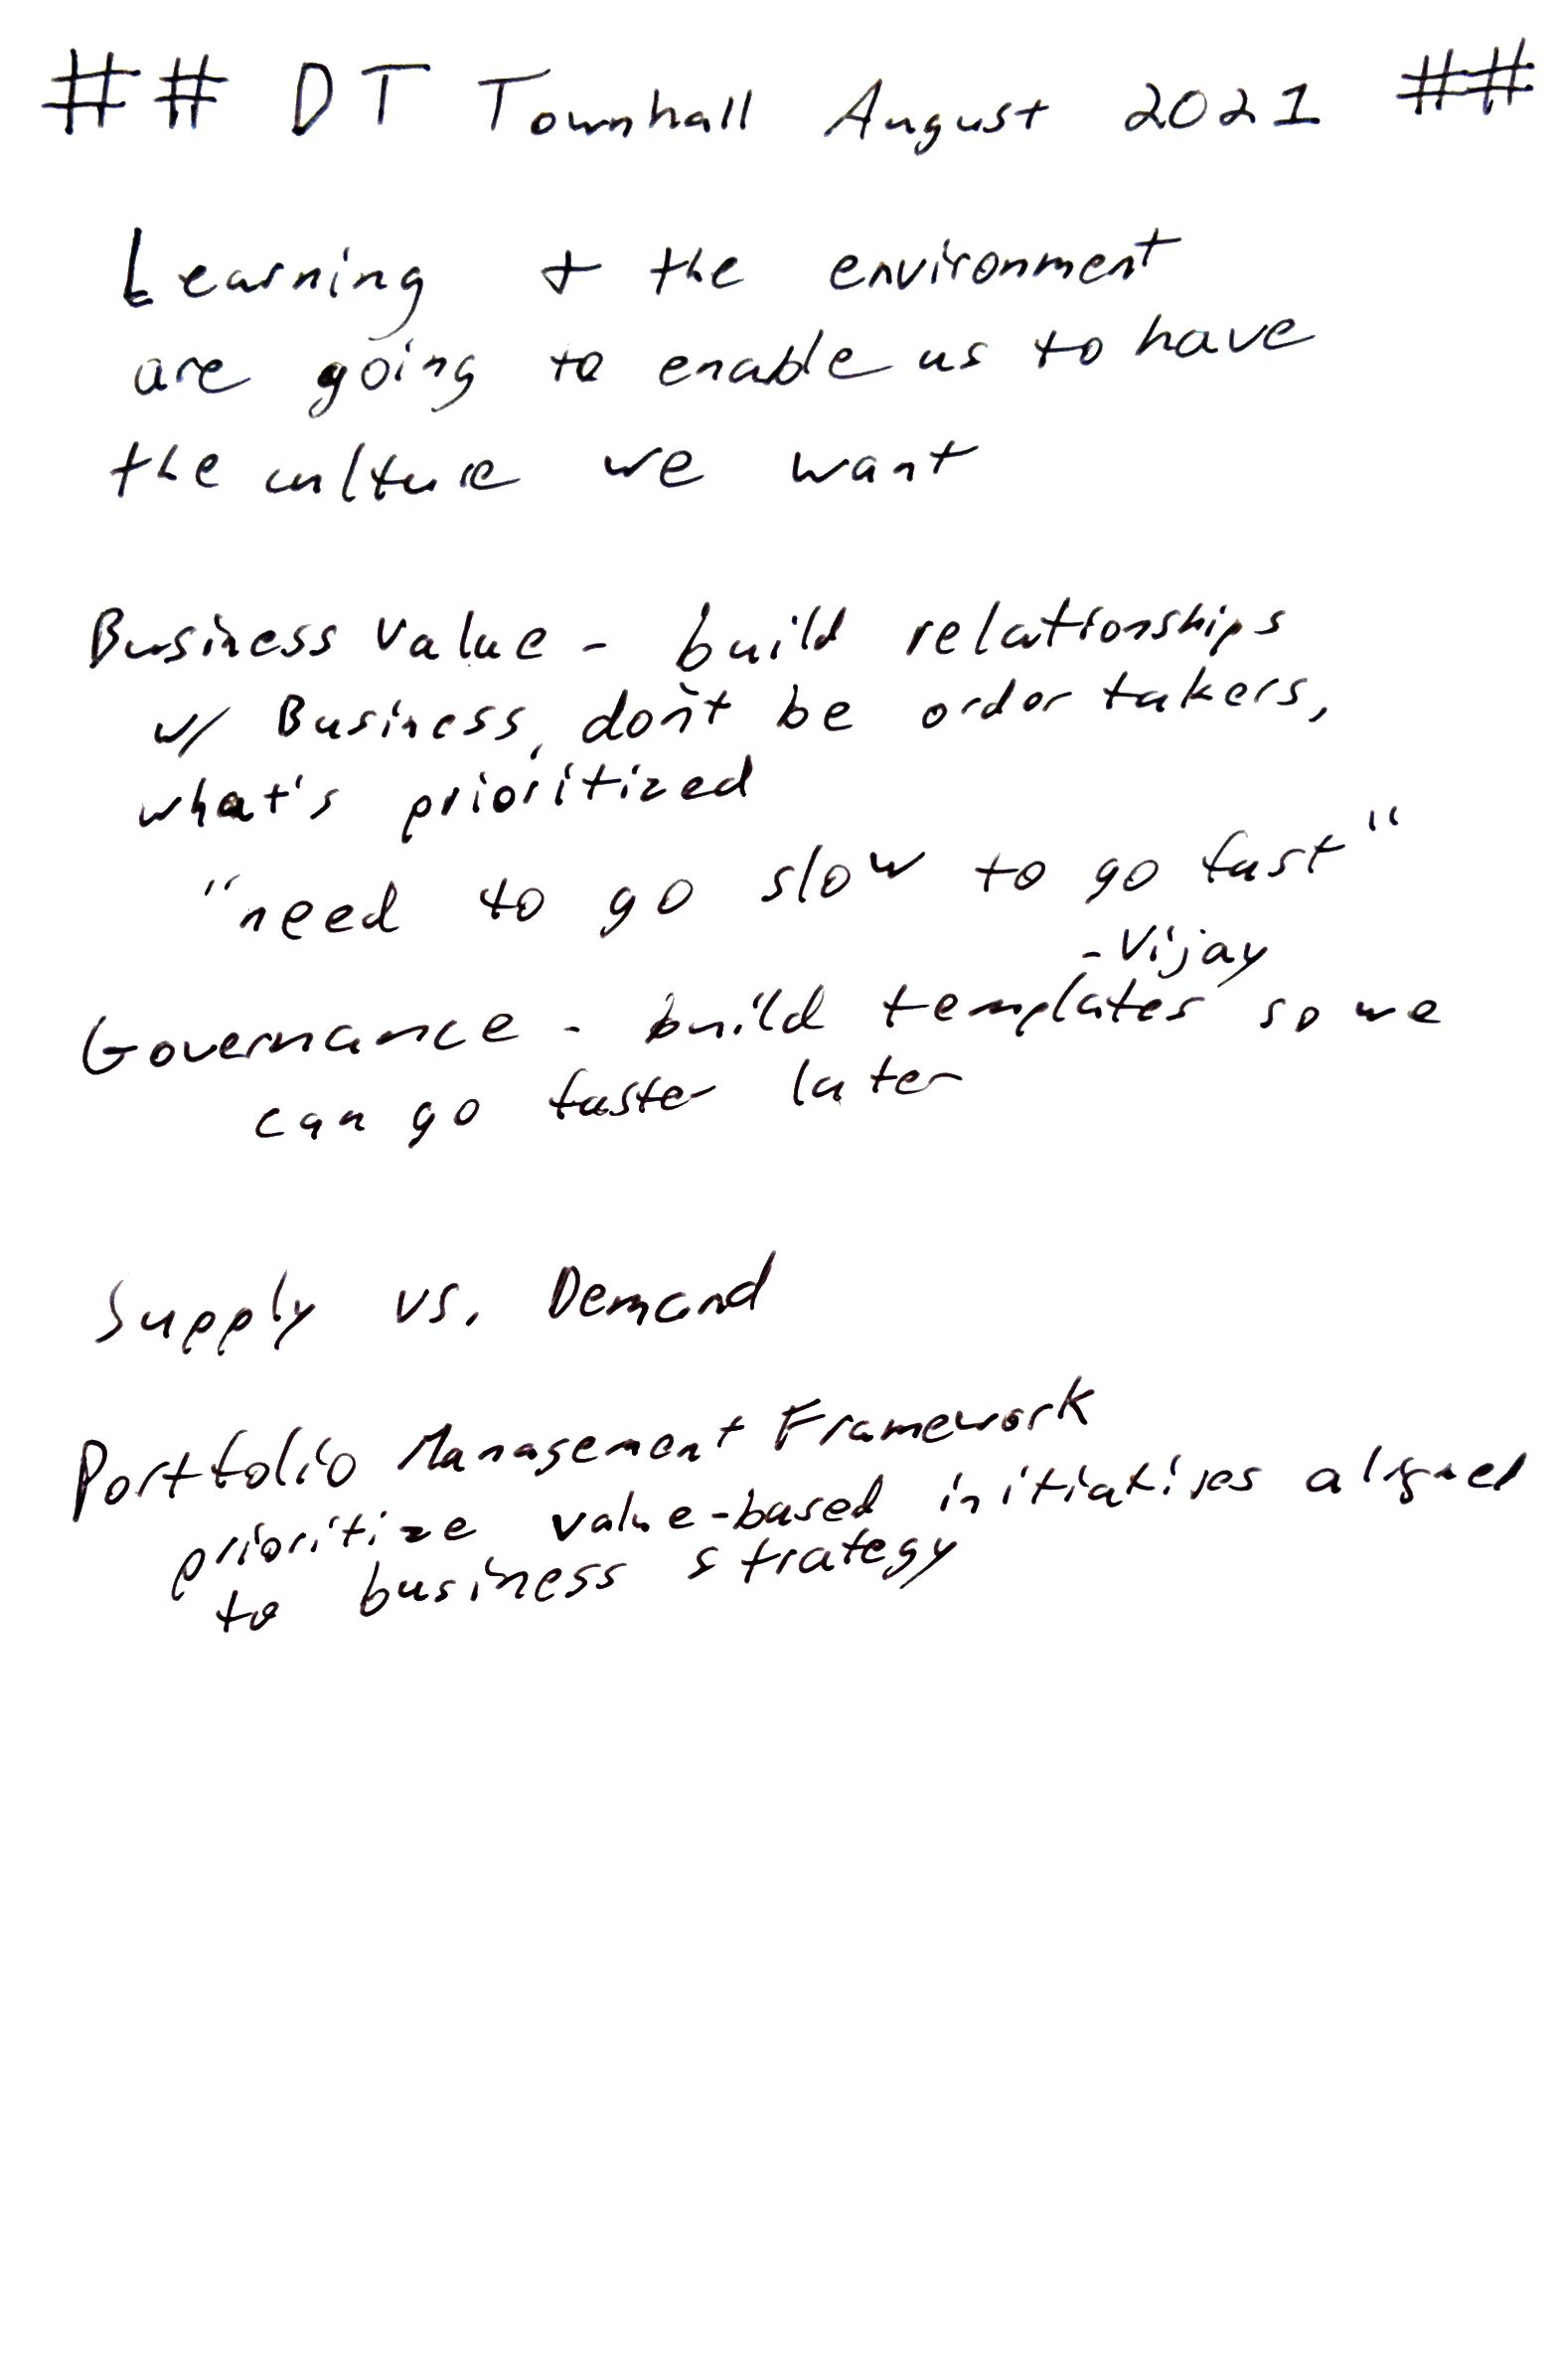 ## DT Townhall August 2021 ##
Learning + the environment
are going to enable us to have
the culture we want
Business Value - build relationships
w/ Business, don't be order takers,
what's prioritized
"need to go slow to go fast"
- Vijay
Governance - build templates so we
can go faster later
Supply vs. Demand
Portfolio Management Framework
prioritize value-based initiatives aligned
to business strategy